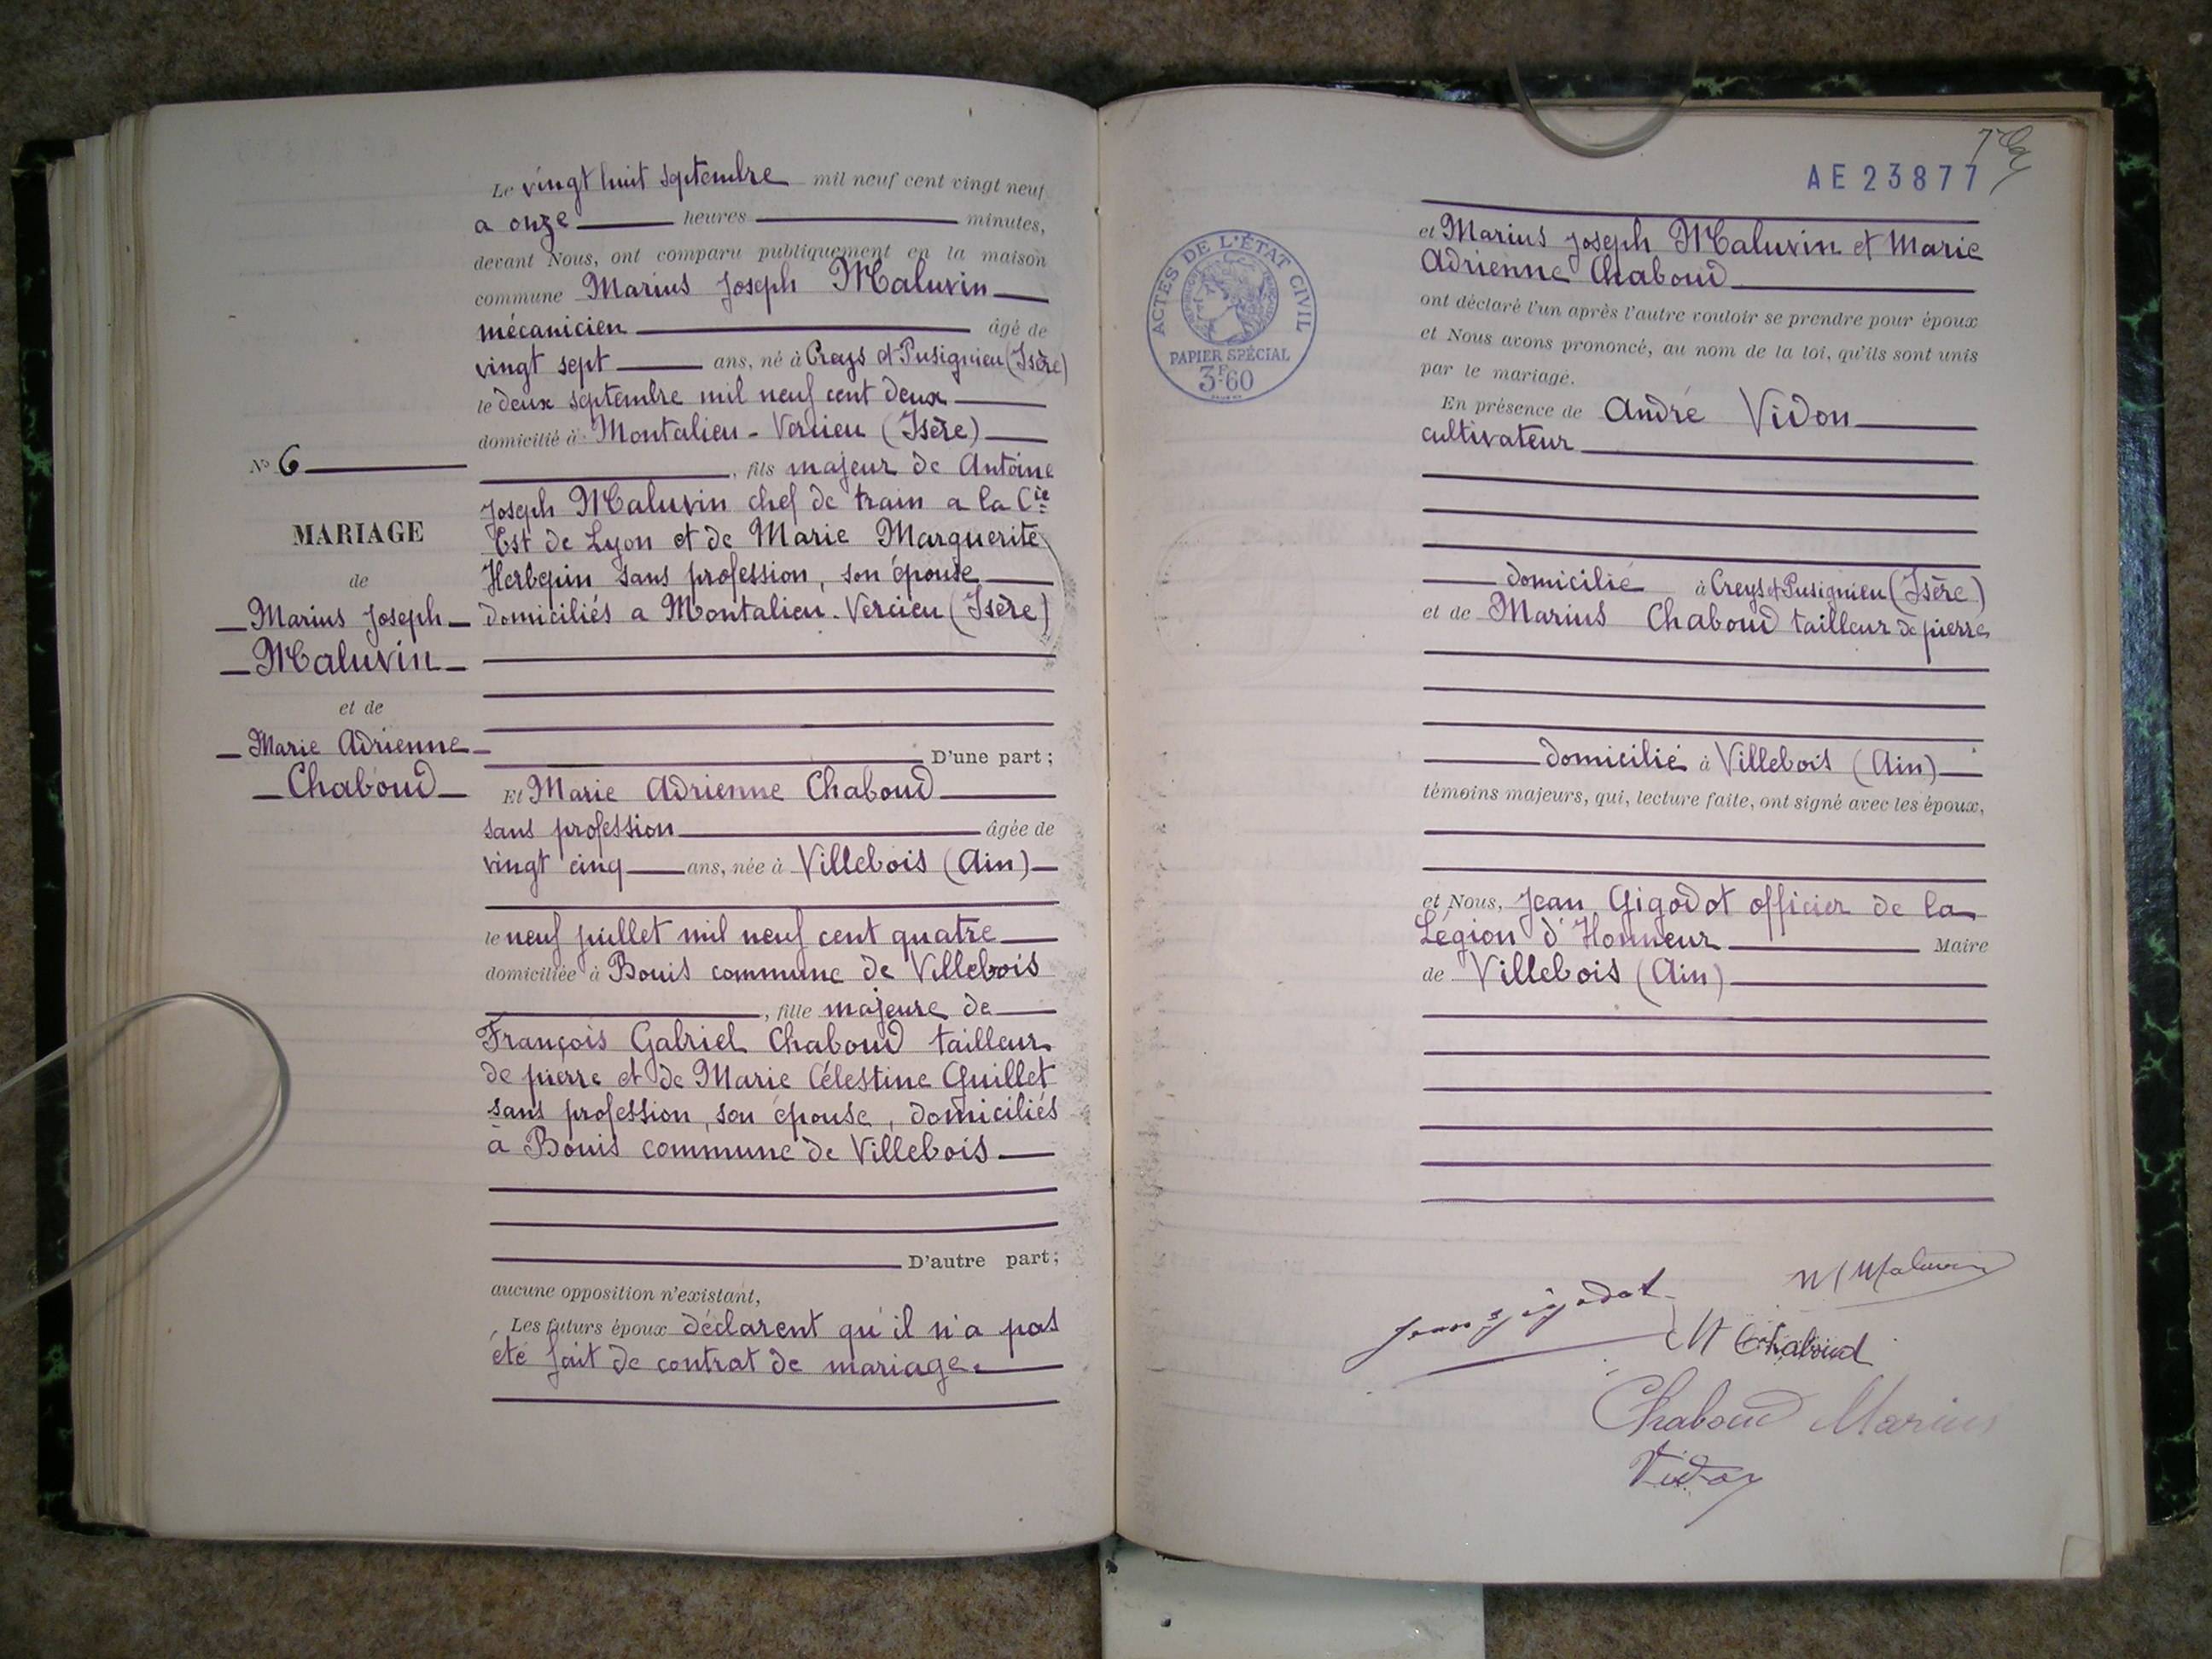 Le vingt huit septembre mil neuf cent vingt neuf
a onze heures minutes,
devant Nous, ont comparu publiquement en la maison
commune Marius Joseph Maluvin
mécanicien âgé de
vingt sept ans, né à Creys et Pusignieu (Isère)
le deux septembre mil neuf cent deux
domicilié à Montalieu - Vercieu (Isère)
, fils majeur de Antoine
Joseph Maluvin chef de train a la Cie
Est de Lyon et de Marie Marguerite
Herbepin sans profession, son épouse
domiciliés a Montalieu - Vercieu (Isère)
D'une part ;
Et Marie Adrienne Chaboud
sans profession âgée de
vingt cinq ans, née à Villebois (Ain)
le neuf juillet mil neuf cent quatre
domiciliée à Bouis commune de Villebois
, fille majeure de
François Gabriel Chaboud tailleur
de pierre et de Marie Célestine Guillet
sans profession, son épouse, domiciliés
à Bouis commune de Villebois
D'autre part ;
aucune opposition n'existant,
Les futurs époux déclarent qu'il n'a pas
été fait de contrat de mariage.
No 6
MARIAGE
de
Marius Joseph
Maluvin
et de
Marie Adrienne
Chaboud
AE 23877
ACTES DE L'ÉTAT CIVIL
PAPIER SPÉCIAL
3F60
et Marius Joseph Maluvin et Marie
Adrienne Chaboud
ont déclaré l'un après l'autre vouloir se prendre pour époux
et Nous avons prononcé, au nom de la loi, qu'ils sont unis
par le mariage.
En présence de André Vidon
cultivateur
domicilié à Creys et Pusignieu (Isère)
et de Marius Chaboud tailleur de pierre
domicilié à Villebois (Ain)
témoins majeurs, qui, lecture faite, ont signé avec les époux,
et Nous, Jean Gigodot officier de la
Légion d'Honneur Maire
de Villebois (Ain)
M Maluvin
Jean Gigodot
M Chaboud
Chaboud Marius
Vidon